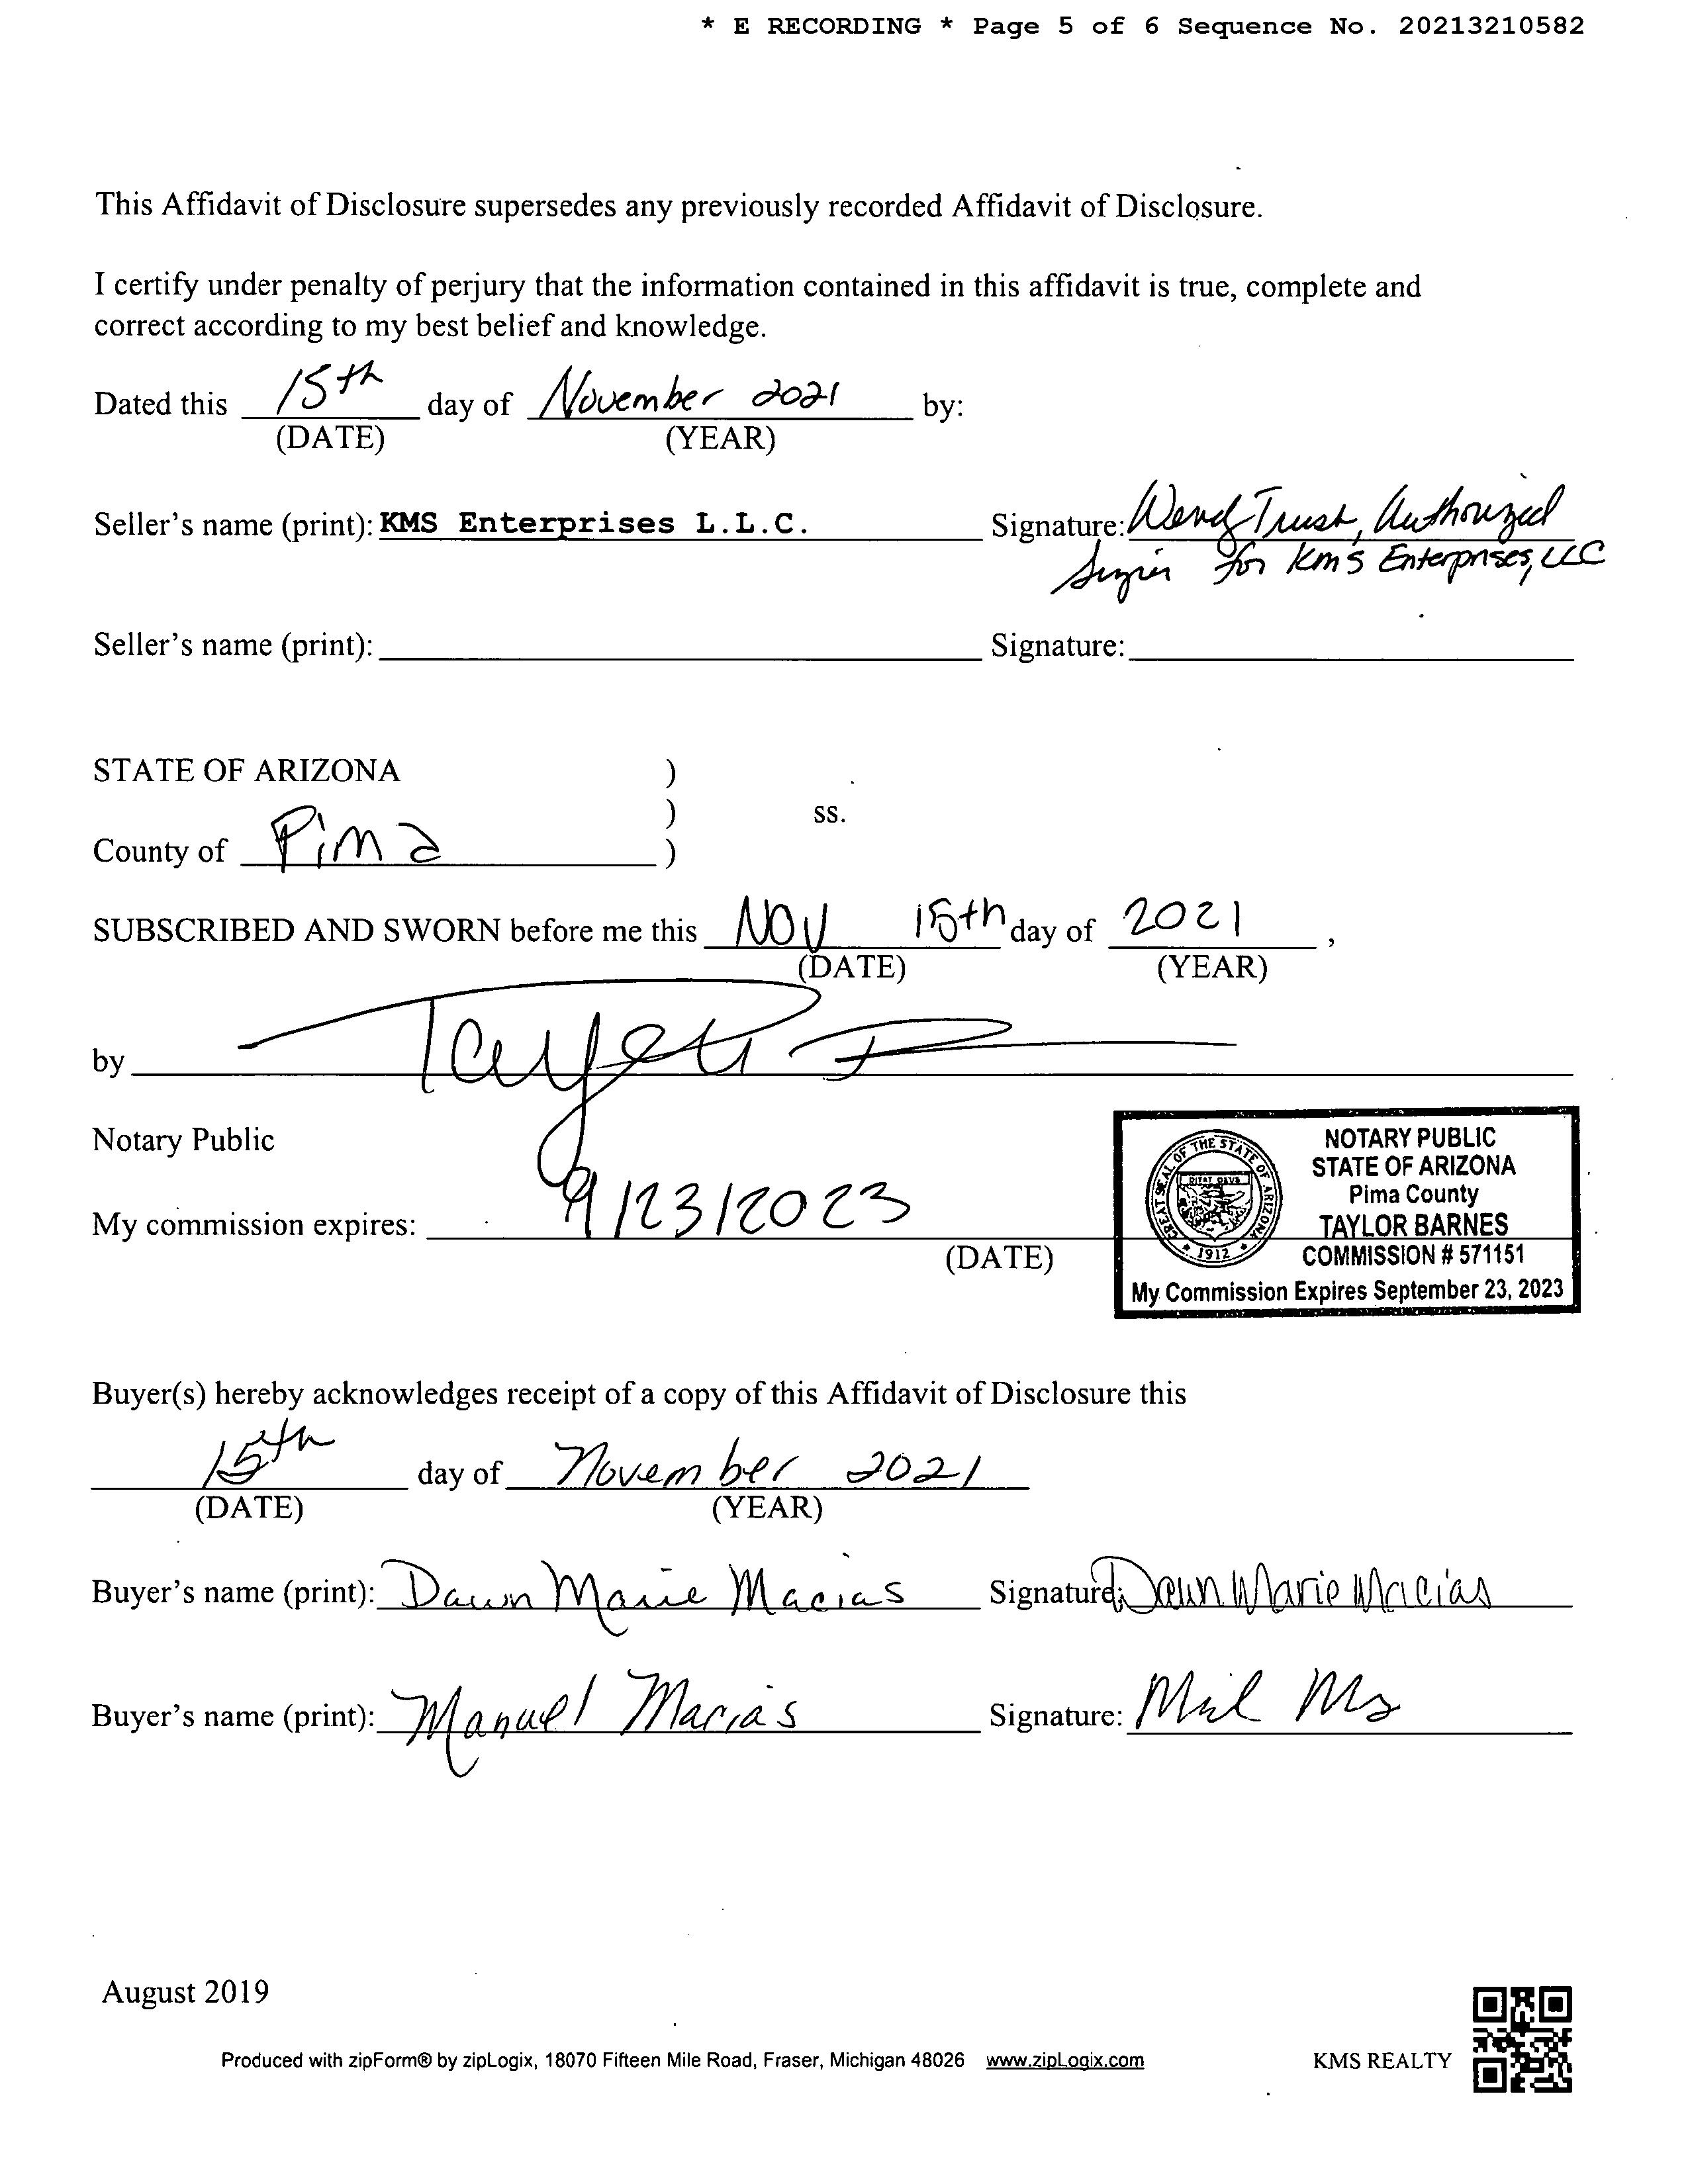 * E RECORDING * Page 5 of 6 Sequence No. 20213210582
This Affidavit of Disclosure supersedes any previously recorded Affidavit of Disclosure.
I certify under penalty of perjury that the information contained in this affidavit is true, complete and
correct according to my best belief and knowledge.
Dated this 15th day of November 2021 by:
(DATE) (YEAR)
Seller's name (print): KMS Enterprises L.L.C. Signature: Wendy Trust, Authorized
Signer for KMS Enterprises, LLC
Seller's name (print): Signature:
STATE OF ARIZONA )
) ss.
County of Pima )
SUBSCRIBED AND SWORN before me this NOV 15th day of 2021 ,
(DATE) (YEAR)
by
Notary Public
My commission expires: 9/23/2023
(DATE)
GREAT SEAL OF THE STATE OF ARIZONA
DITAT DEUS
1912
NOTARY PUBLIC
STATE OF ARIZONA
Pima County
TAYLOR BARNES
COMMISSION # 571151
My Commission Expires September 23, 2023
Buyer(s) hereby acknowledges receipt of a copy of this Affidavit of Disclosure this
15th day of November 2021
(DATE) (YEAR)
Buyer's name (print): Dawn Marie Macias Signature: Dawn Marie Macias
Buyer's name (print): Manuel Macias Signature:
August 2019
Produced with zipForm® by zipLogix, 18070 Fifteen Mile Road, Fraser, Michigan 48026 www.zipLogix.com KMS REALTY